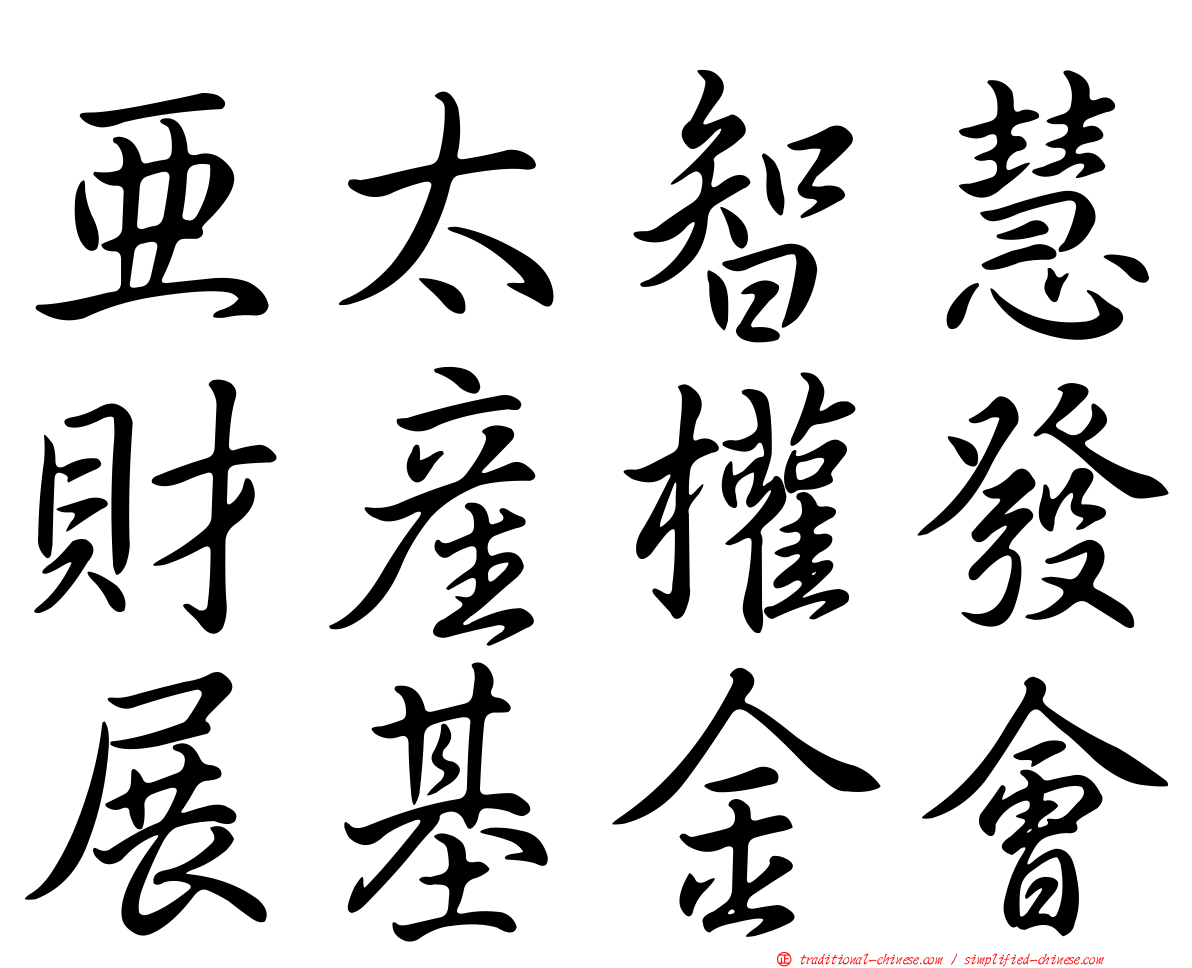 亞太智慧
財產權發
展基金會
㊣ traditional-chinese.com / simplified-chinese.com